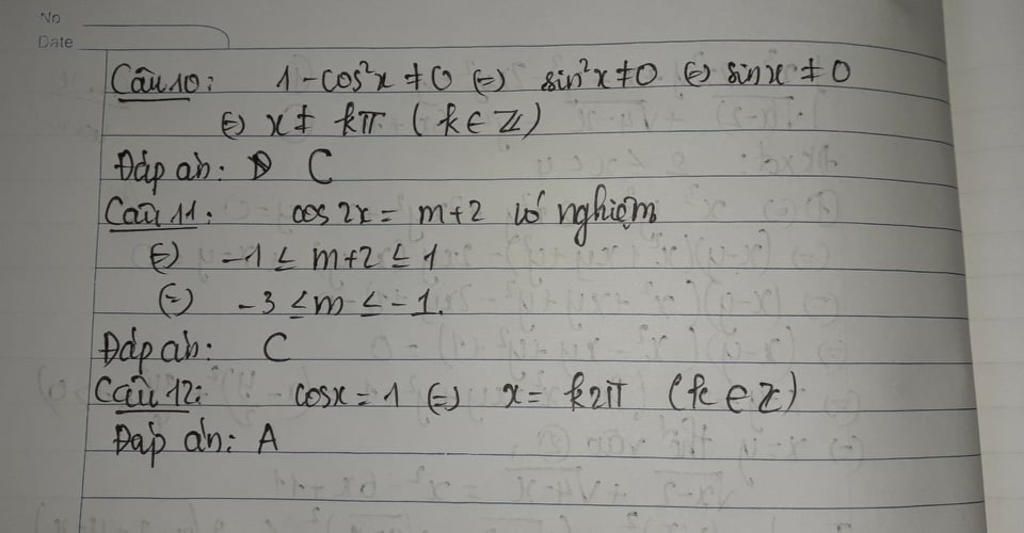 No
Date
Câu 10: 1 - cos²x ≠ 0 (=) sin²x ≠ 0 (=) sinx ≠ 0
(=) x ≠ kπ (k ∈ Z)
Đáp án: C
Câu 11: cos 2x = m+2 có nghiệm
(=) -1 ≤ m+2 ≤ 1
(=) -3 ≤ m ≤ -1.
Đáp án: C
Câu 12: cosx = 1 (=) x = k2π (k ∈ Z)
Đáp án: A